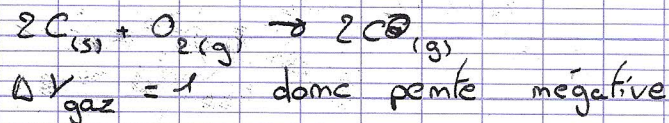 2C(s) + O2(g) → 2CO(g)
ΔVgaz = 1 donc pente négative